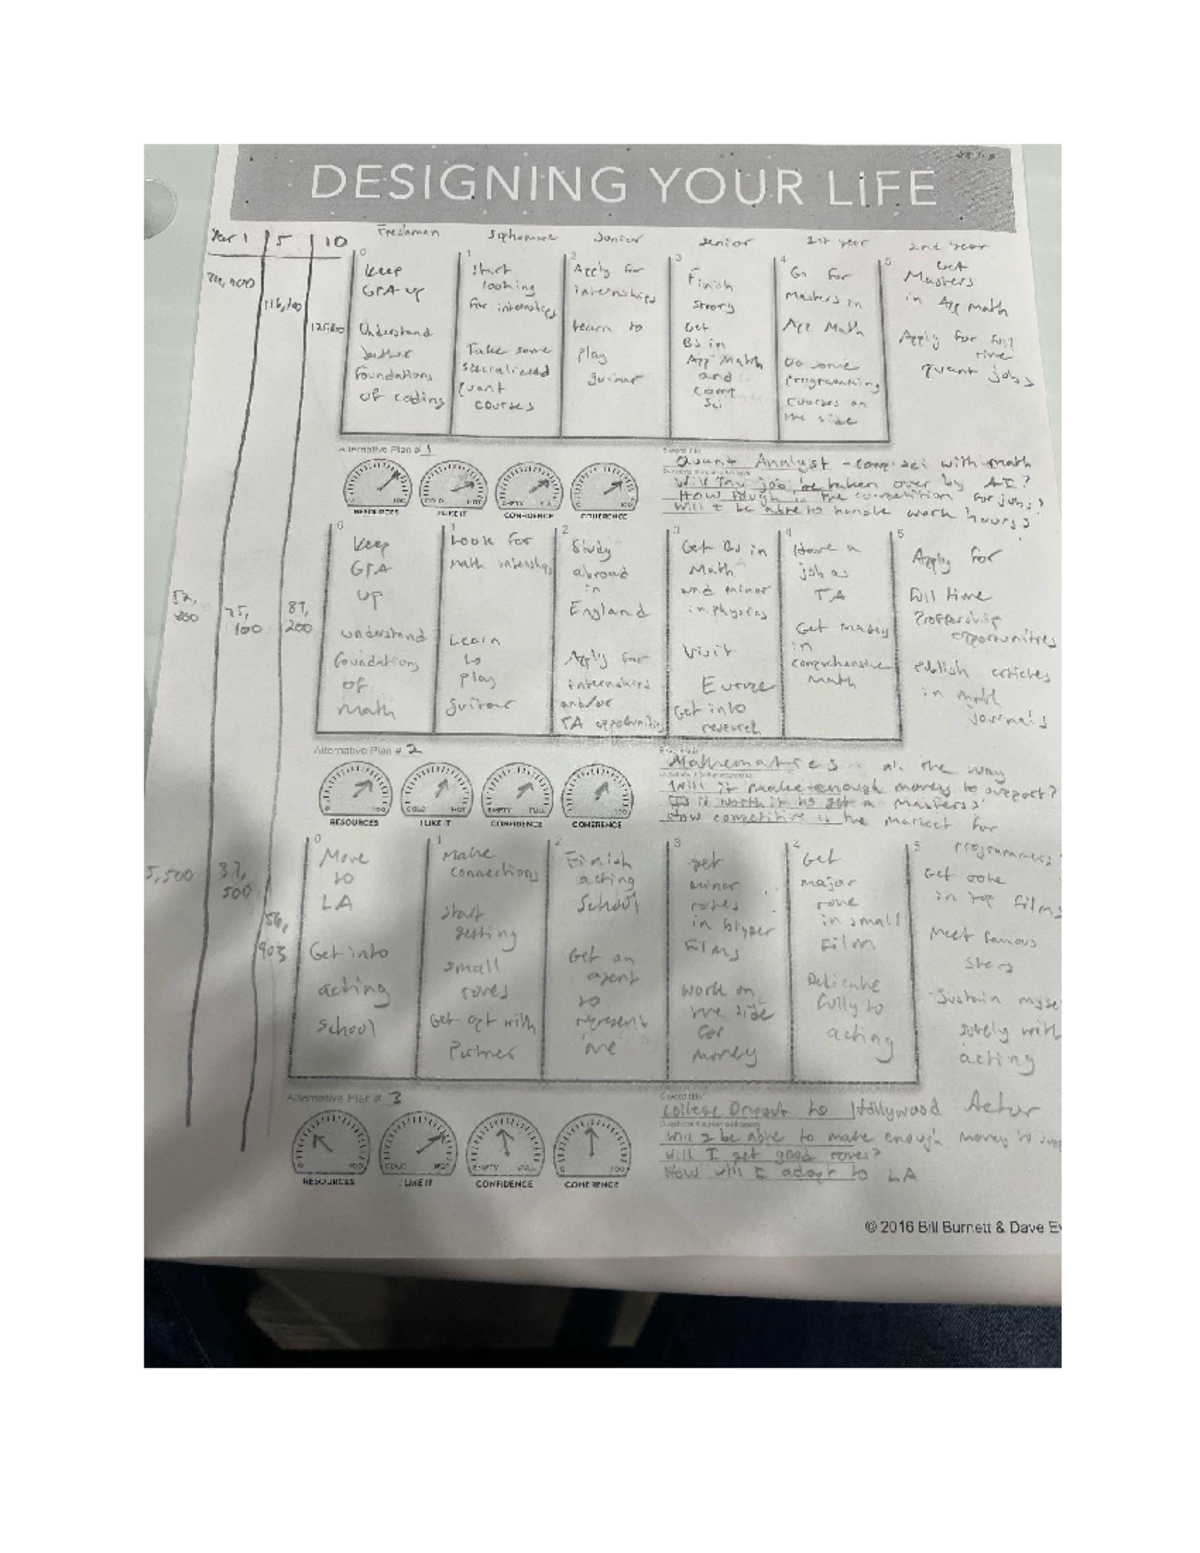 DESIGNING YOUR LiFE
Year 1 5 10
Freshman Sophomore Junior Senior 1st year 2nd year
0
Keep
GPA up
Understand
further
foundations
of coding
1
Start
looking
for internships
Take some
specialized
quant
courses
2
Apply for
internships
Learn to
play
guitar
3
Finish
strong
Get
BS in
App Math
and
comp
sci
4
Go for
Masters in
App. Math
Do some
programming
courses on
the side
5
Get
Masters
in App math
Apply for full
time
quant jobs
116,100
Alternative Plan # 1
RESOURCES
COLD HOT
I LIKE IT
EMPTY
CONFIDENCE
COHERENCE
Quant Analyst - comp sci with math
Will this job be taken over by A.I?
How tough is the competition for jobs?
Will I be able to handle work hours?
0
Keep
GPA
up
understand
foundations
of
math
1
Look for
math internships
Learn
to
play
guitar
2
Study
abroad
in
England
Apply for
internships
and/or
TA opportunities
3
Get BS in
Math
and minor
in physics
Visit
Europe
Get into
research
4
Have a
job as
TA
Get masters
in
comprehensive
math
5
Apply for
full time
opportunities
publish articles
in math
journals
75,
100
87,
200
Alternative Plan # 2
0 100
RESOURCES
COLD HOT
I LIKE IT
EMPTY FULL
CONFIDENCE
COHERENCE
Mathematics all the way
Will it make enough money to support?
Is it worth it to get a Masters?
How competitive is the market for
programmers?
0
Move
to
LA
Get into
acting
school
1
Make
connections
start
getting
small
roles
Get apt with
Partner
2
Finish
acting
school
Get an
agent
to
represent
me
3
get
minor
roles
in bigger
films
work on
the side
for
money
4
Get
major
role
in small
film
Dedicate
fully to
acting
5
Get role
in top films
Meet famous
stars
Sustain myse
solely with
acting
5,500
37,
500
56,
903
Alternative Plan # 3
0 100
RESOURCES
COLD HOT
I LIKE IT
EMPTY FULL
CONFIDENCE
0 100
COHERENCE
College Dropout to Hollywood Actor
Will I be able to make enough money to supp
Will I get good roles?
How will I adapt to LA
© 2016 Bill Burnett & Dave Ev